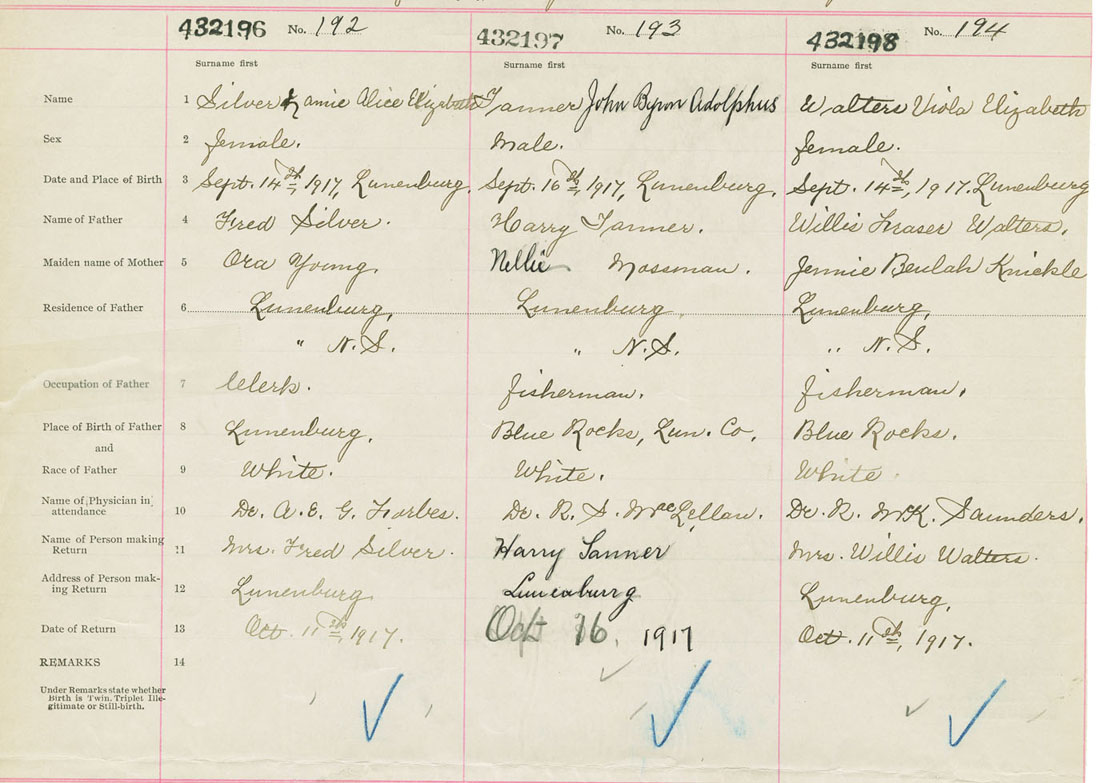 432196 No. 192 432197 No. 193 432198 No. 194
Surname first Surname first Surname first
Name 1 Silver Alice Elizabeth Tanner John Byron Adolphus Walters Viola Elizabeth
Sex 2 female. Male. female.
Date and Place of Birth 3 Sept. 14th, 1917, Lunenburg, Sept. 16th, 1917, Lunenburg, Sept. 14th, 1917. Lunenburg
Name of Father 4 Fred Silver. Harry Tanner. Willis Fraser Walters.
Maiden name of Mother 5 Ora Young. Nellie Mossman. Jennie Beulah Knickle
Residence of Father 6 Lunenburg, Lunenburg, Lunenburg,
" N.S. " N.S. " N.S.
Occupation of Father 7 Clerk. fisherman. fisherman.
Place of Birth of Father 8 Lunenburg. Blue Rocks, Lun. Co. Blue Rocks.
and
Race of Father 9 White. White. White.
Name of Physician in
attendance 10 Dr. A. E. G. Forbes. Dr. R. S. McLellan. Dr. R. McK. Saunders.
Name of Person making
Return 11 Mrs. Fred Silver. Harry Tanner Mrs. Willis Walters.
Address of Person mak-
ing Return 12 Lunenburg Lunenburg Lunenburg,
Date of Return 13 Oct. 11th, 1917. Oct 16, 1917 Oct. 11th, 1917.
REMARKS 14
Under Remarks state whether
Birth is Twin, Triplet Ille-
gitimate or Still-birth.